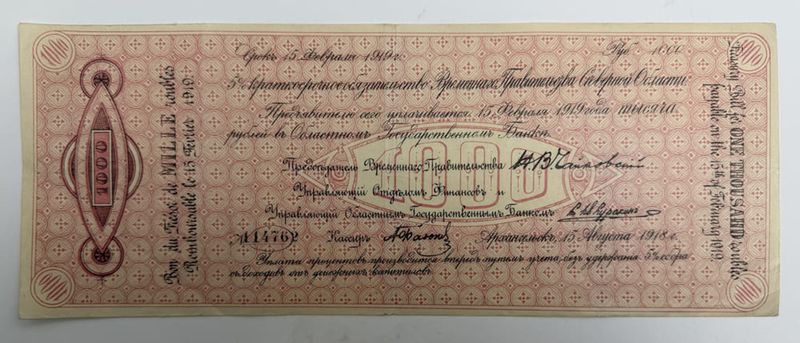 Срокъ 15 Февраля 1919 г.
Руб. 1000
5% краткосрочное обязательство Временнаго Правительства Сѣверной Области
Предъявителю сего уплачивается 15 Февраля 1919 года тысяча
рублей въ Областномъ Государственномъ Банкѣ.
Предсѣдатель Временнаго Правительства Н. В. Чайковскій
Управляющій Отдѣломъ Финансовъ и
Управляющій Областнымъ Государственнымъ Банкомъ
№ 114762 Кассиръ Архангельскъ, 15 Августа 1918 г.
Уплата процентовъ производится впередъ путемъ учета, безъ удержанія 5% сбора
съ доходовъ отъ денежныхъ капиталовъ.
1000
1000
Bon du Trésor de MILLE roubles
Remboursable le 15 Février 1919.
Treasury Bill for ONE THOUSAND roubles
payable on the 15th of February 1919
1000
1000
1000
1000